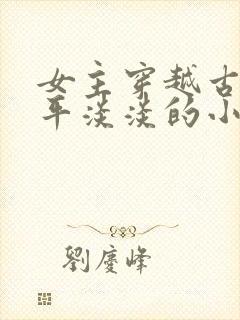 女主穿越古
平淡淡的小
劉慶峰